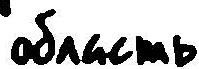 область